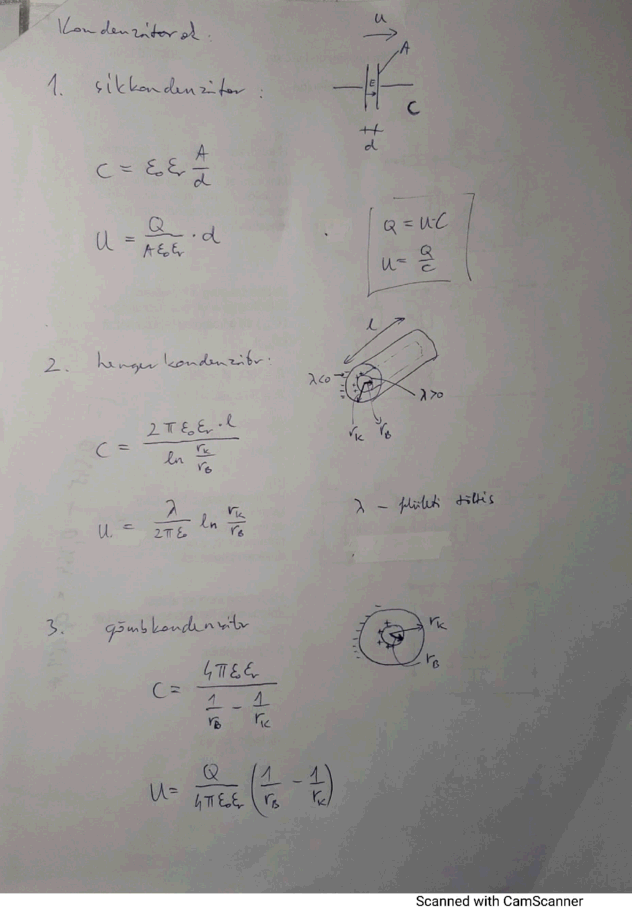 Kondenzátorok:
U
1. síkkondenzátor:
A
E
C
d
C = ε₀εᵣ A/d
U = Q/(Aε₀εᵣ) · d
Q = U·C
U = Q/C
2. hengerkondenzátor:
l
λ<0
λ>0
r_K r_B
C = (2πε₀εᵣ·l)/(ln r_K/r_B)
U = λ/(2πε₀) ln r_K/r_B
λ – töltés
3. gömbkondenzátor
r_K
r_B
C = (4πε₀εᵣ)/(1/r_B − 1/r_K)
U = Q/(4πε₀εᵣ) (1/r_B − 1/r_K)
Scanned with CamScanner